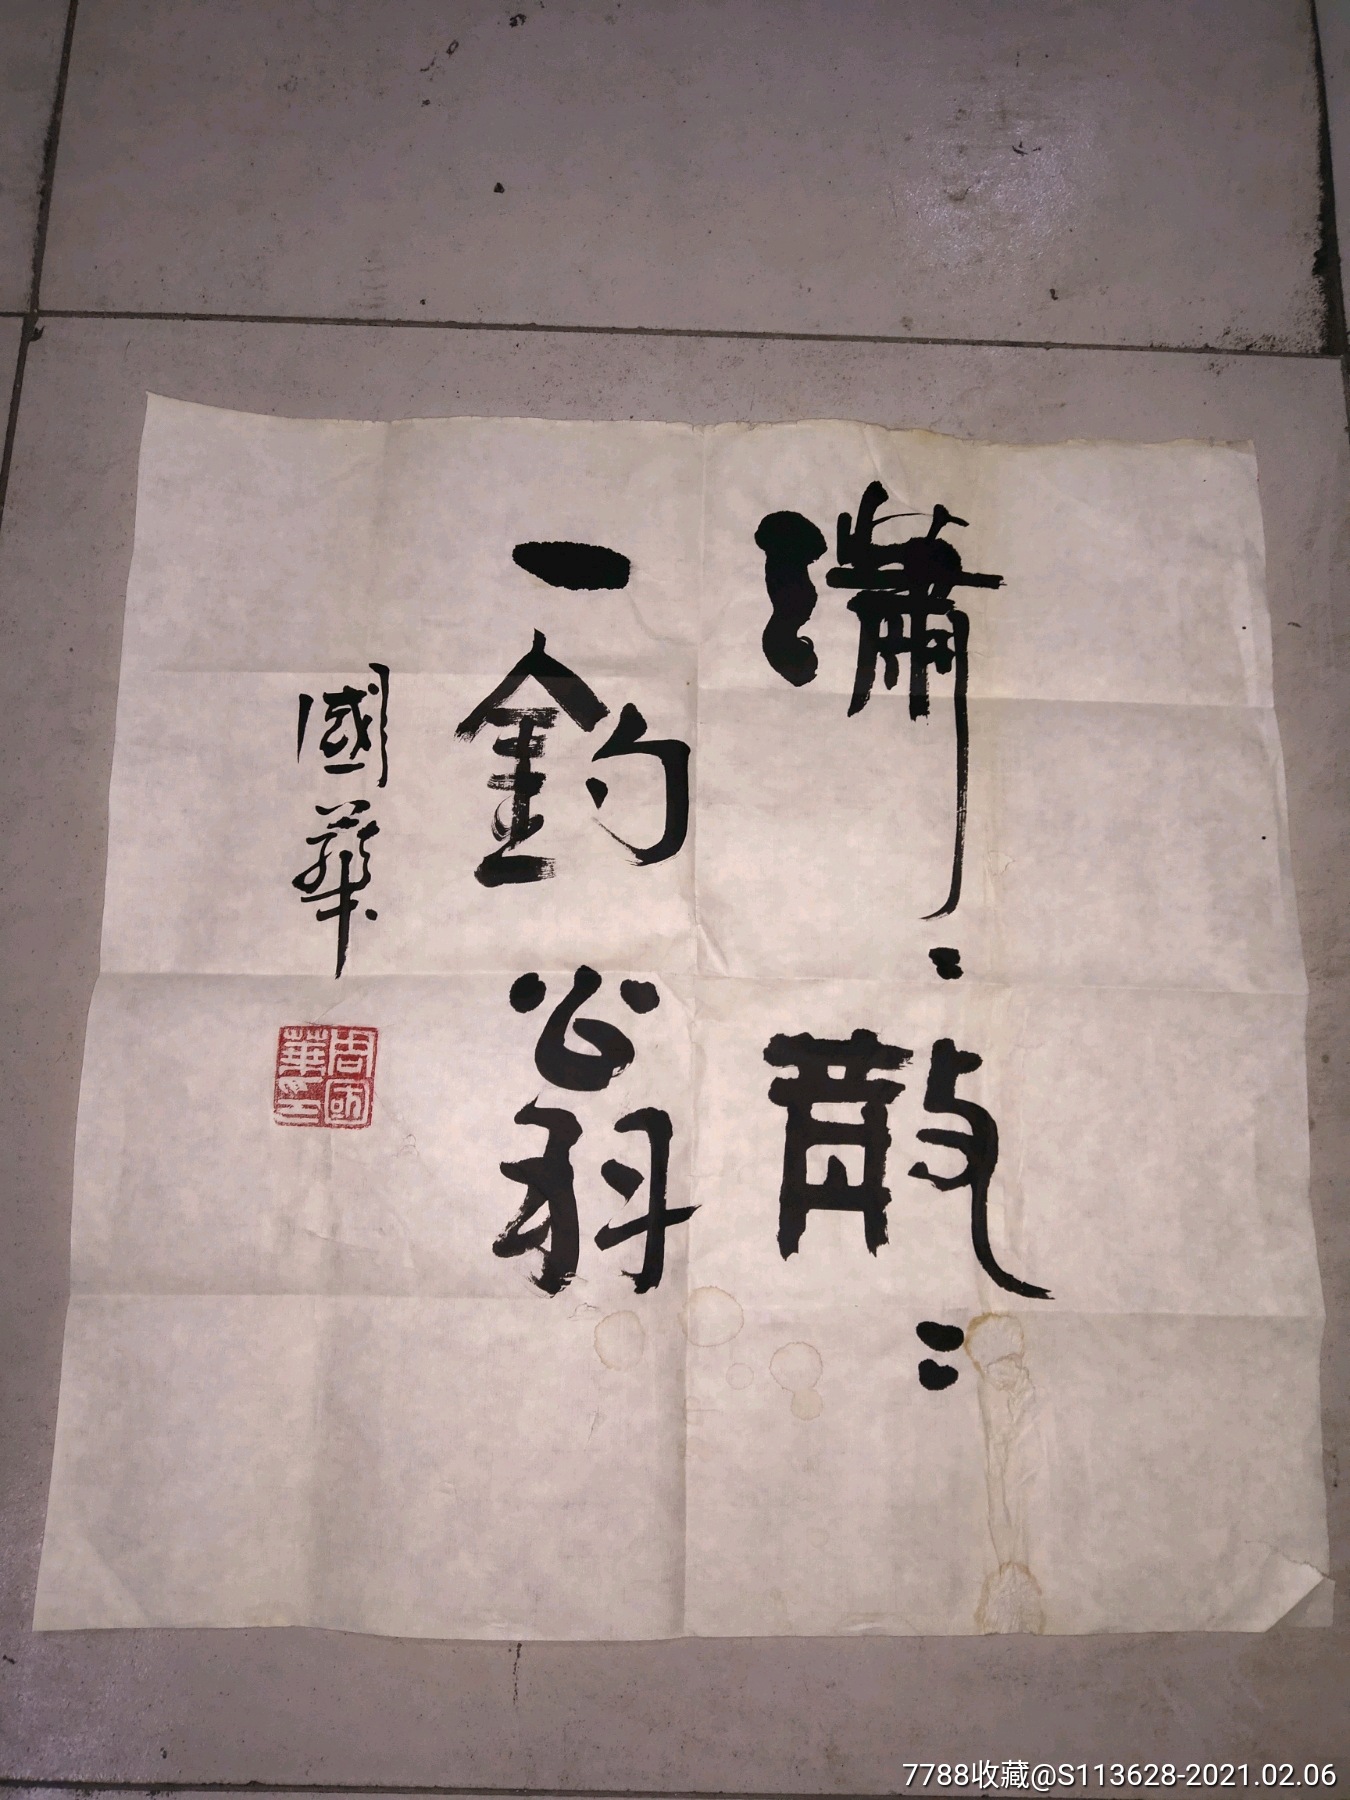 瀟〻散〻
一釣翁
國華
周國華印
7788收藏@S113628-2021.02.06